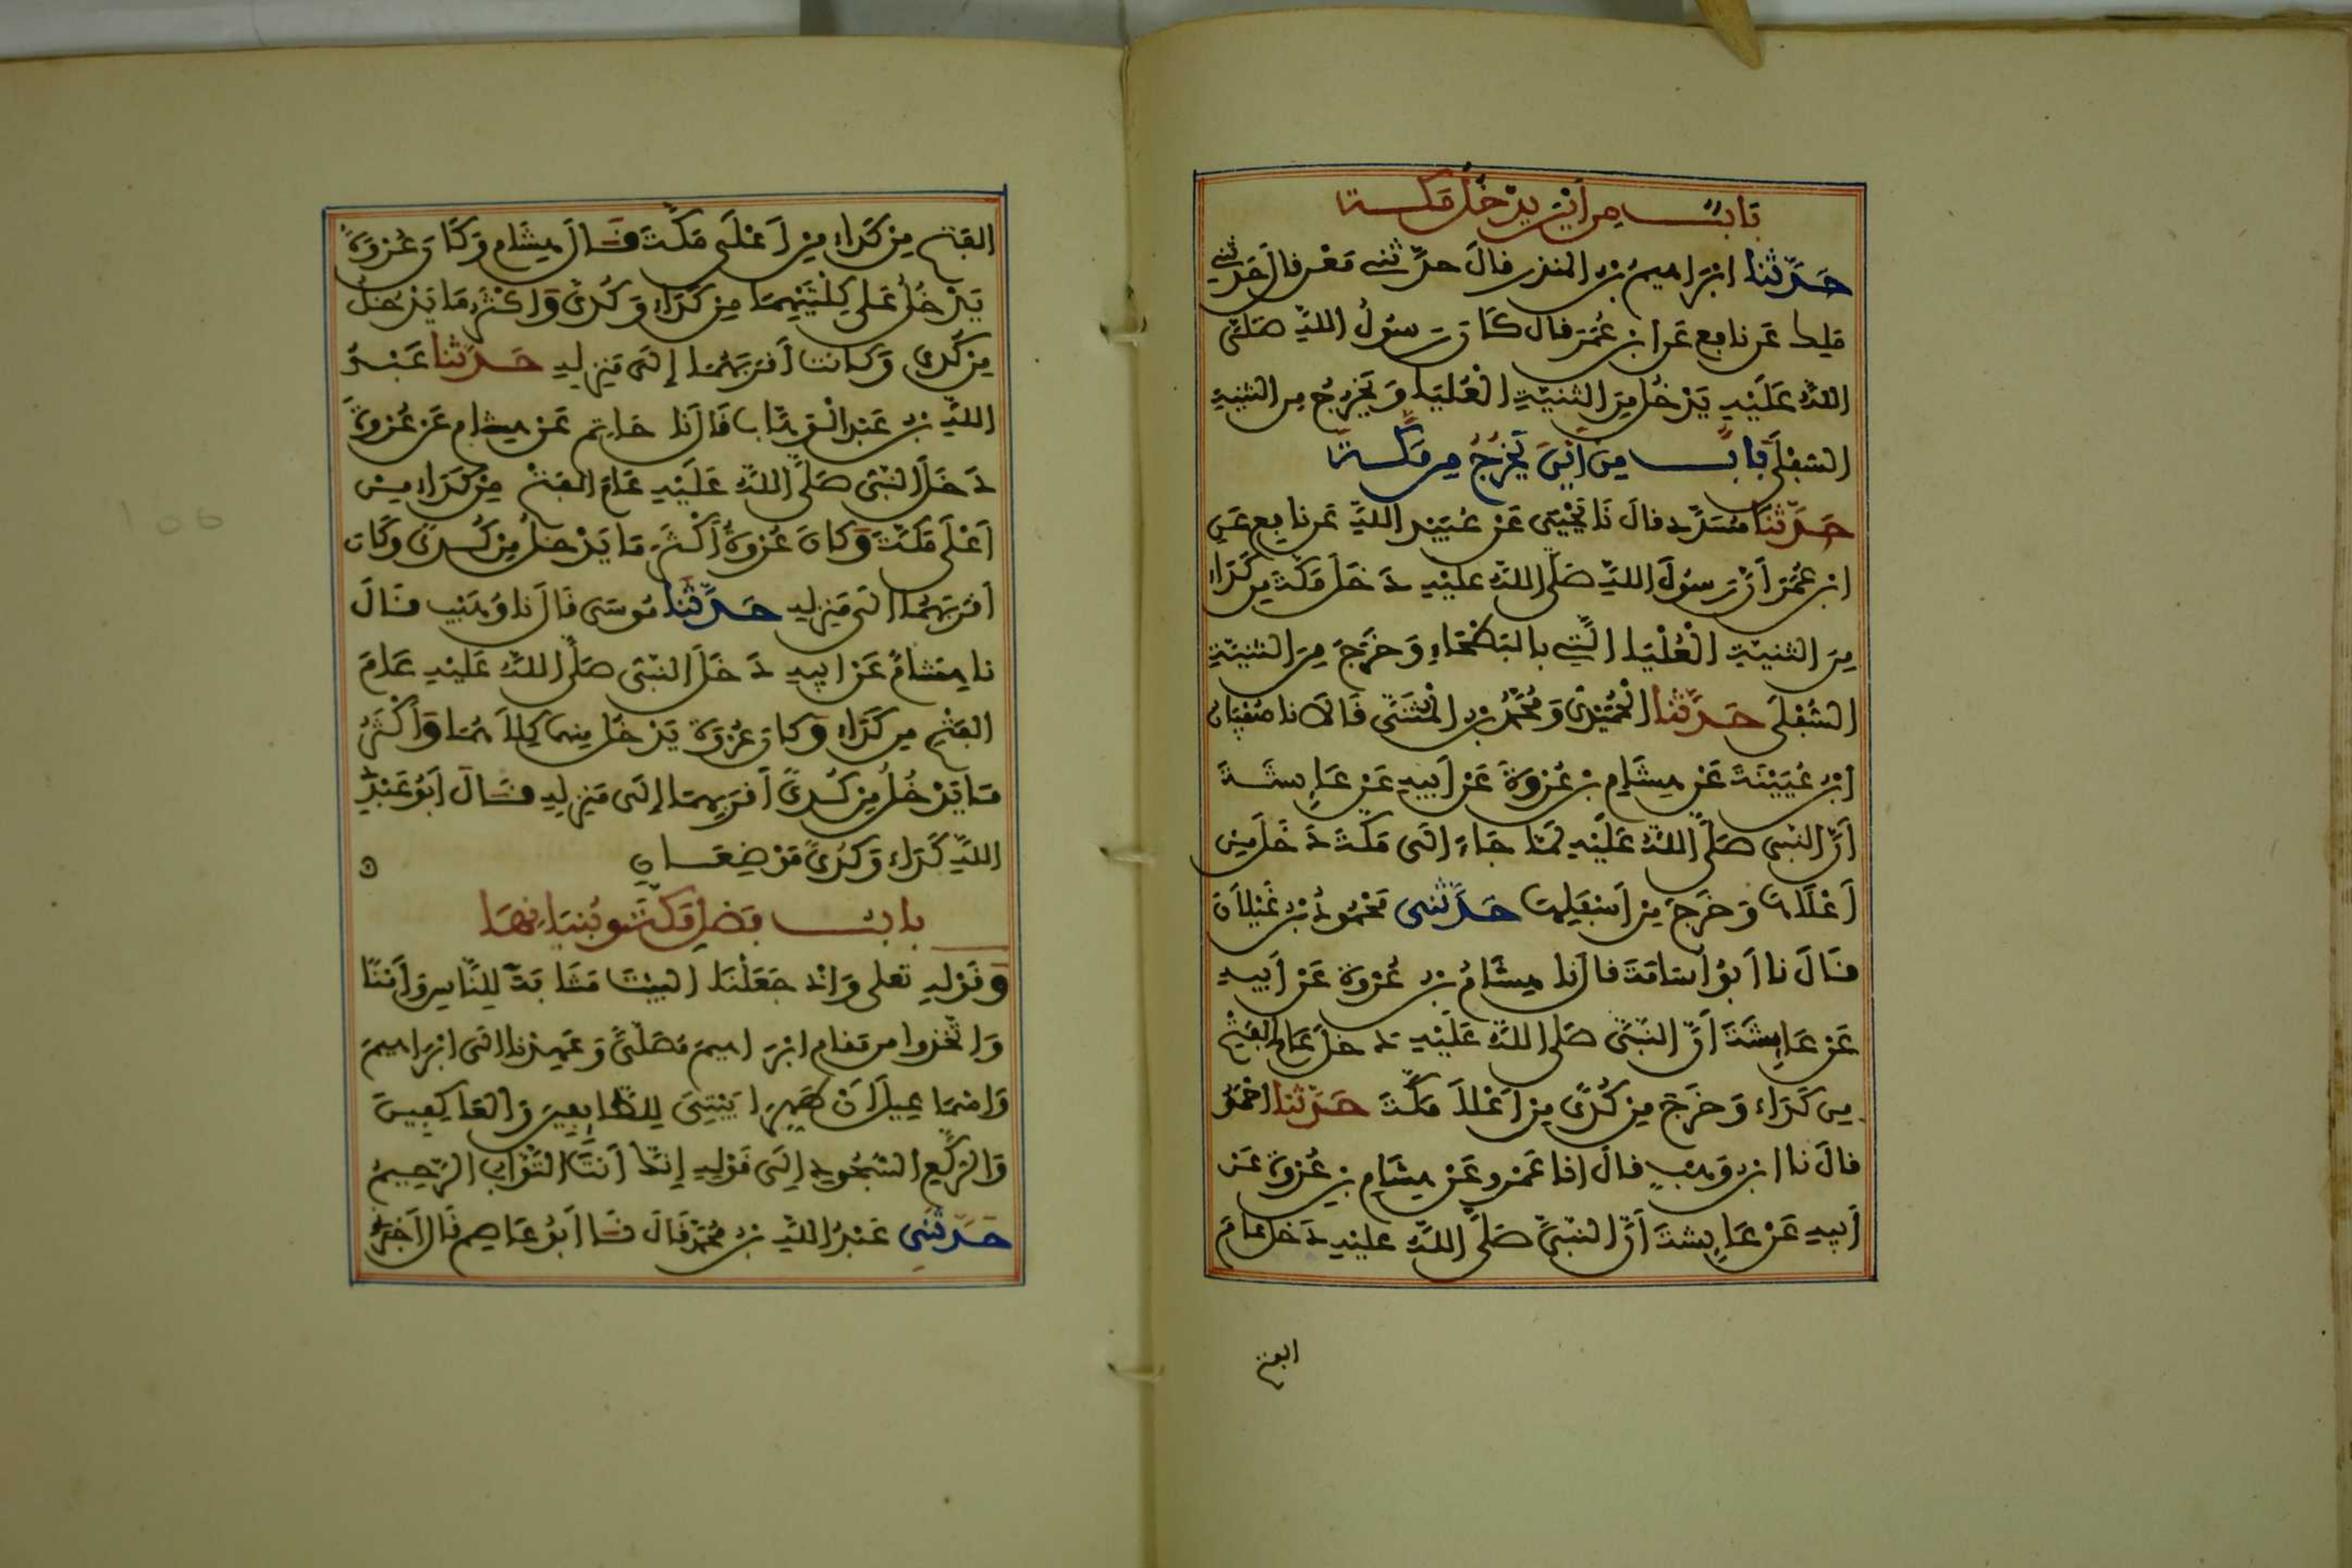 بَابٌ مِنْ أَيْنَ يَدْخُلُ مَكَّةَ
حَدَّثَنَا ابْرَاهِيمُ بْنُ المنذر قالَ حدَّثني مَعْن قال حَدثني
مَلِك عَن نافِع عَن ابْن عُمَرَ قال كَانَ رَسُولُ اللهِ صَلَّى
اللهُ عَلَيْهِ يَدْخُلُ مِنَ الثَّنِيَّةِ الْعُلْيَا وَيَخْرُجُ مِنَ الثنِيَّةِ
السُّفْلَى بَابٌ مِنْ أَيْنَ يَخْرُجُ مِن مَكَّةَ
حَدَّثَنَا مُسَدَّد قالَ نَا يَحْيَى عَنْ عُبَيْدِ اللهِ عَن نافِع عَنِ
ابْنِ عُمَرَ أَنَّ رَسُولَ اللهِ صَلَّى اللهُ عليْهِ دَخَلَ مَكَّةَ مِن كَدَاءٍ
مِنَ الثنيَّةِ الْعُلْيَا الَّتِي بالبَطْحَاءِ وَخَرَجَ مِنَ الثنيَّةِ
السُّفْلَى حَدَّثَنَا الْحُمَيْدِيُّ وَمُحَمَّدُ بْنُ الْمُثَنَّى قَالَا نا سُفْيَانُ
ابْنُ عُيَيْنَةَ عَنْ هِشَامِ بْنِ عُرْوَةَ عَنْ أَبِيهِ عَنْ عَائِشَةَ
أَنَّ النَّبِي صَلَّى اللهُ عَلَيْهِ لَمَّا جَاءَ إلَى مَكَّةَ دَخَلَ مِنْ
أَعْلَاهَا وَخَرَجَ مِنْ أَسْفَلِهَا حَدَّثَنِي مَحْمُودُ بْنُ غَيْلَانَ
قَالَ نا أَبُو اُسَامَةَ قال نا هِشَامُ بْنُ عُرْوَةَ عَنْ أَبِيهِ
عَنْ عَائِشَةَ أَنَّ النَّبِيَّ صَلَّى اللهُ عَلَيْهِ دَخَلَ عَامَ الْفَتْحِ
مِن كَدَاءٍ وَخَرَجَ مِنْ كُدًى مِنْ أَعْلَا مَكَّةَ حَدَّثَنَا احْمَدُ
قالَ نا ابْنُ وَهْبٍ قالَ انا عَمْرو عَنْ هِشَامِ بْنِ عُرْوَةَ عَنْ
أَبِيهِ عَنْ عَائِشَةَ أَنَّ النَّبِيَّ صَلَّى اللهُ عليْهِ دَخَلَ عَامَ
الفتح
الفَتْحِ مِنْ كَدَاءٍ مِنْ أَعْلَى مَكَّةَ قَالَ هِشَام وَكَانَ عُرْوَةُ
يَدْخُلُ عَلَى كِلْتَيْهِمَا مِنْ كَدَاءٍ وَكُدًى وَاكْثَرُ مَا يَدْخُلُ
مِنْ كُدًى وَكَانَت أَقْرَبَهُمَا إِلَى مَنْزِلِهِ حَدَّثَنَا عَبْدُ
اللهِ بْنُ عَبْدِ الْوَهَّابِ قَالَ نَا حَاتِم عَنْ هِشَامٍ عَنْ عُرْوَةَ
دَخَلَ النَّبِيُّ صَلَّى اللهُ عَلَيْهِ عَامَ الفَتْحِ مِنْ كَدَاءٍ مِنْ
اَعْلَى مَكَّةَ وَكَانَ عُرْوَةُ أَكْثَرَ مَا يَدْخُلُ مِنْ كُدًى وَكَانَ
أقْرَبَهُمَا الَى مَنْزِلِهِ حَدَّثَنَا مُوسَى قَالَ نا وُهَيْب قَالَ
نا هِشَامٌ عَنْ ابِيهِ دَخَلَ النَّبِيُّ صَلَّى اللهُ عَلَيْهِ عَامَ
الفَتْحِ مِن كَدَاءٍ وَكَانَ عُرْوَةُ يَدْخُلُ مِنهما كِلَاهُمَا وَأَكْثَرُ
مَا يَدْخُلُ مِنْ كُدًى أَقْرَبِهِمَا إِلَى مَنْزِلِهِ قَالَ أَبُو عَبْدِ
اللهِ كَدَاءٌ وَكُدًى مَوْضِعَانِ
بَابُ فَضْلِ مَكَّةَ وَبُنْيَانِهَا
وَقَوْلِهِ تعلى وَإِذْ جَعَلْنَا الْبَيْتَ مَثَابَةً لِلنَّاسِ وَأَمْنًا
وَاتَّخِذُوا مِن مَقَامِ ابْرَاهِيمَ مُصَلًّى وَعَهِدْنَا إِلَى ابْرَاهِيمَ
وَاسْمَاعِيلَ أَنْ طَهِّرَا بَيْتِيَ لِلطَّائِفِينَ وَالْعَاكِفِينَ
وَالرُّكَّعِ السُّجُودِ إِلَى قَوْلِهِ إِنَّكَ أَنْتَ التَّوَّابُ الرَّحِيمُ
حَدَّثَنِي عَبْدُ اللهِ بْنُ مُحَمَّدٍ قَالَ نَا أَبُو عَاصِمٍ قَالَ أَخْبَرَنِي